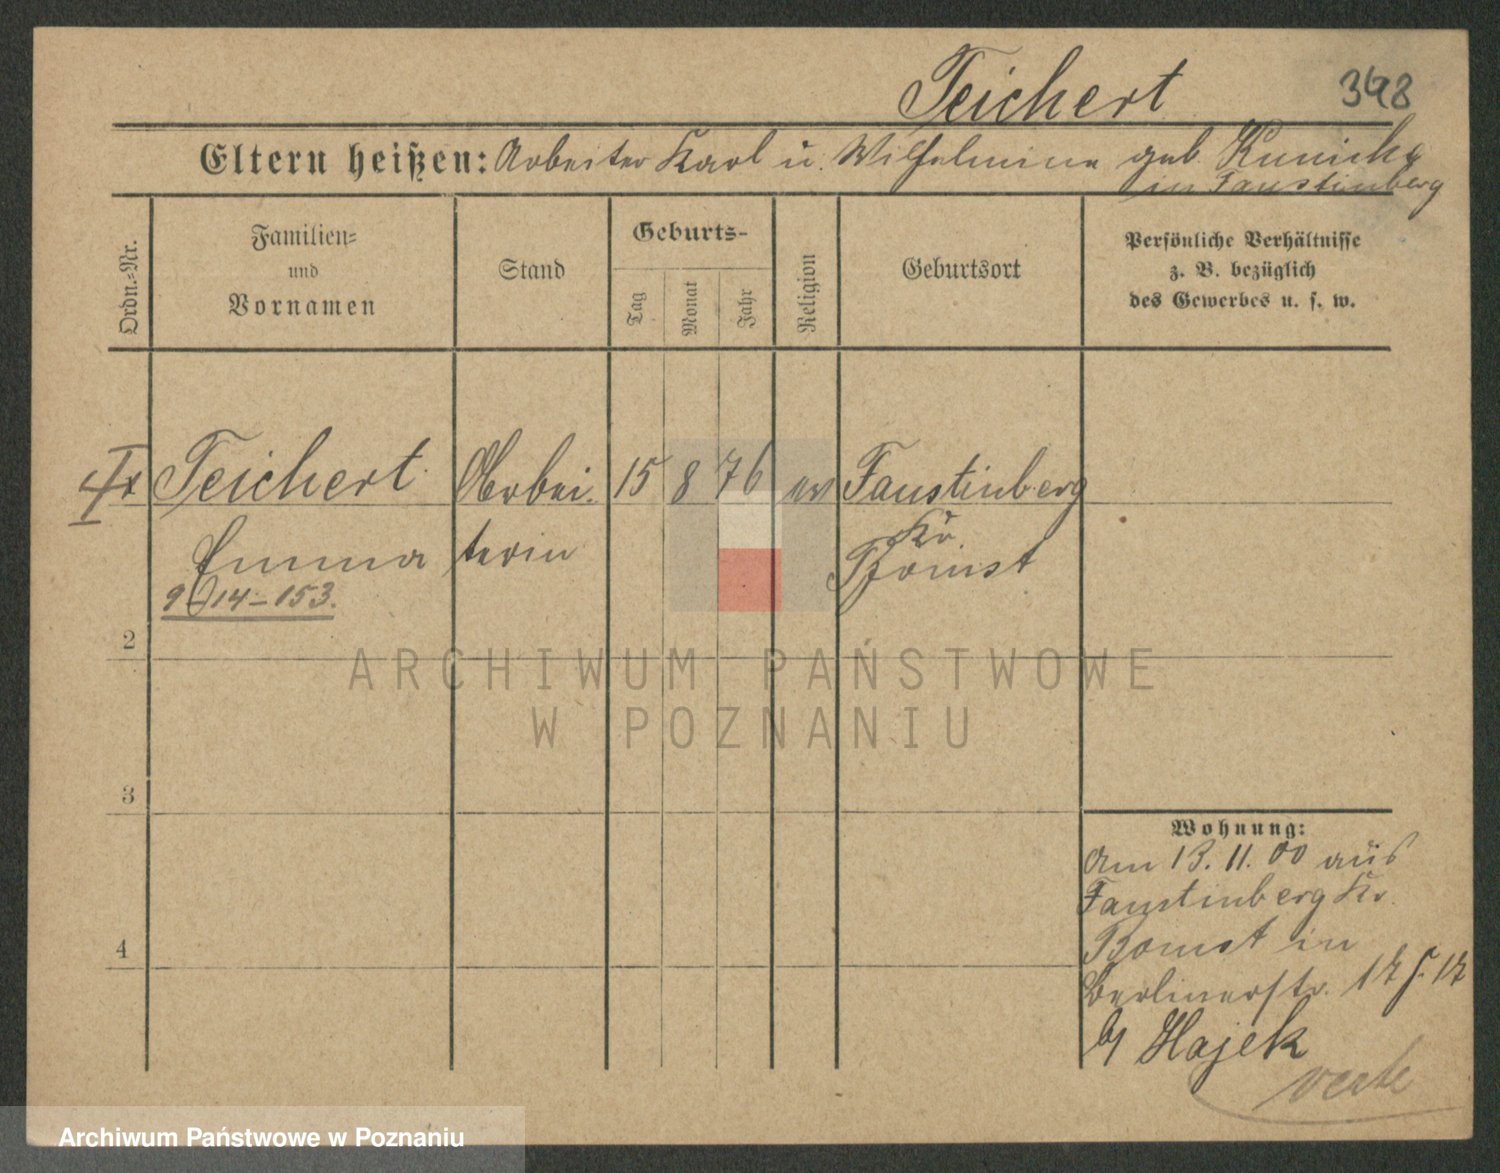 Teichert
398
Eltern heißen: Arbeiter Karl u. Wilhelmine geb. Kunicke
in Faustinberg
Ordn.=Nr.
Familien=
und
Vornamen
Stand
Geburts=
Tag
Monat
Jahr
Religion
Geburtsort
Persönliche Verhältnisse
z. B. bezüglich
des Gewerbes u. s. w.
Teichert Arbei- 15 8 76 ev Faustinberg
Kr.
Emma terin Bomst
9-14-153.
2
3
4
ARCHIWUM PAŃSTWOWE
W POZNANIU
Wohnung:
Am 13. 11. 00 aus
Faustinberg Kr.
Bomst in
Berlinerstr. 17
b/ Hajek
verte
Archiwum Państwowe w Poznaniu